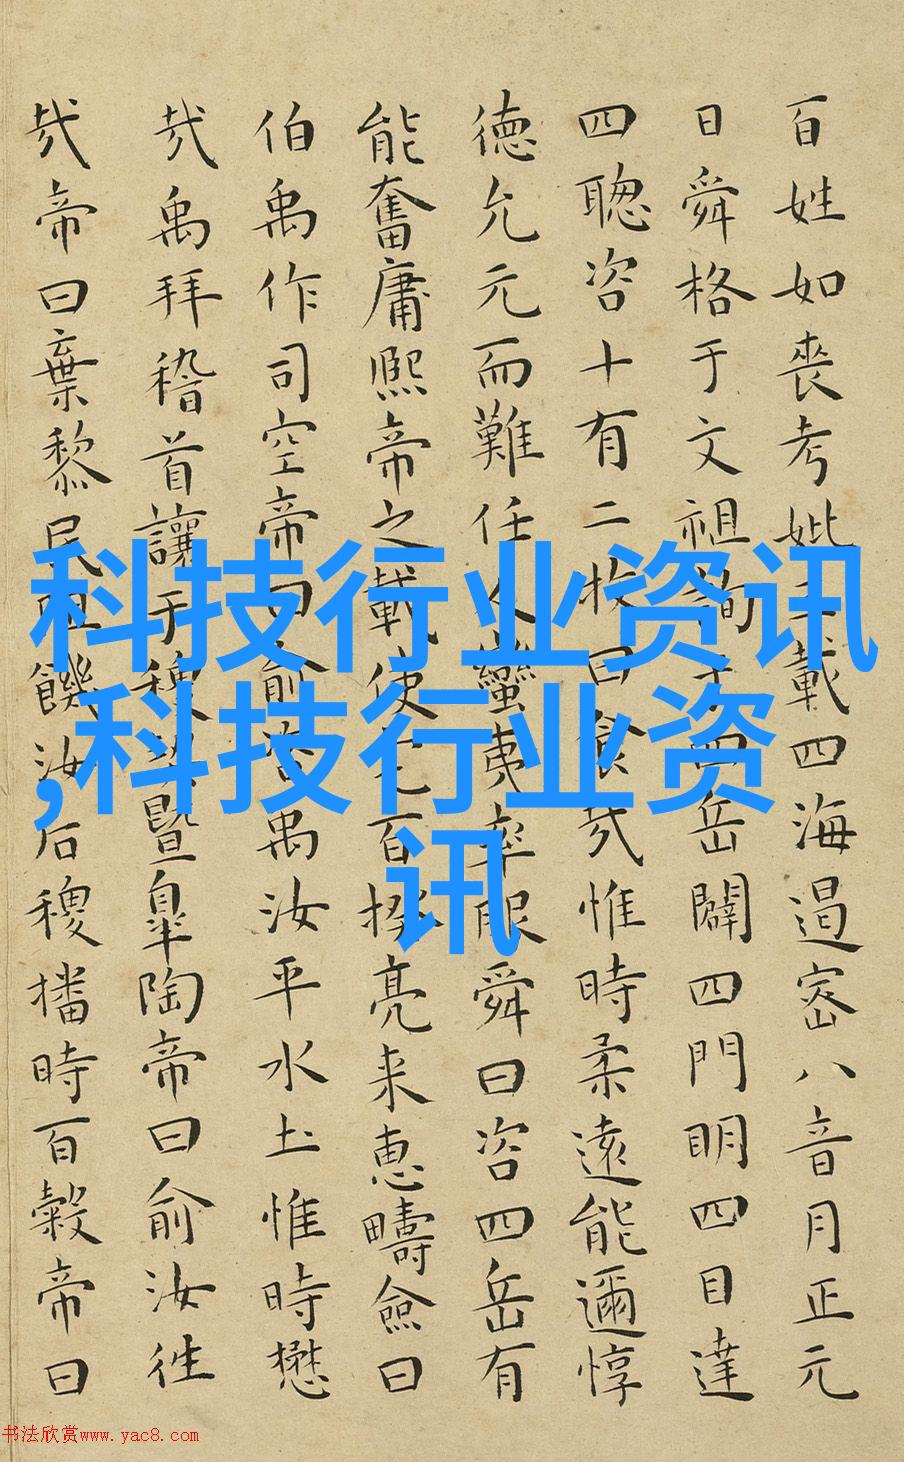 百姓如喪考妣載四海遏密八音月正元
日舜格于文祖詢于四岳闢四門明四目達
四聦咨十有二牧曰食哉惟時柔遠能邇惇
徳允元而難任人蠻夷率服舜曰咨四岳有
能奮庸熙帝之載使宅百揆亮采恵疇僉曰
伯禹作司空帝曰俞咨禹汝平水土惟時懋
哉禹拜稽首讓于稷暨皐陶帝曰俞汝往
哉帝曰棄黎民阻饑汝后稷播時百穀帝曰
科技行业资讯
,科技行业资
讯
书法欣赏www.yac8.com